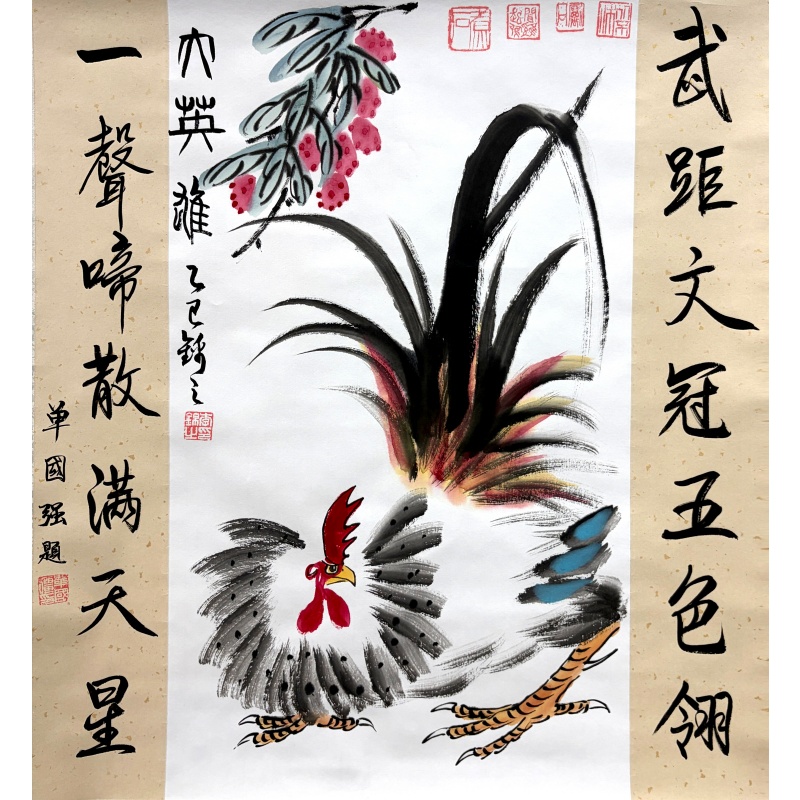 武距文冠五色翎
一聲啼散满天星
单國强题
大英雄
乙巳錦之